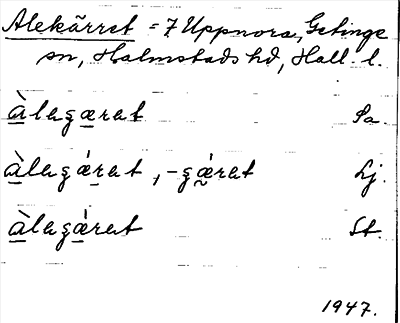 Alekärret = 7 Uppnora, Getinge
sn, Halmstads hd, Hall. l.
àlagærat Sa.
àlagǽrat, -gǽrat Lj.
àlagǽrat St.
1947.